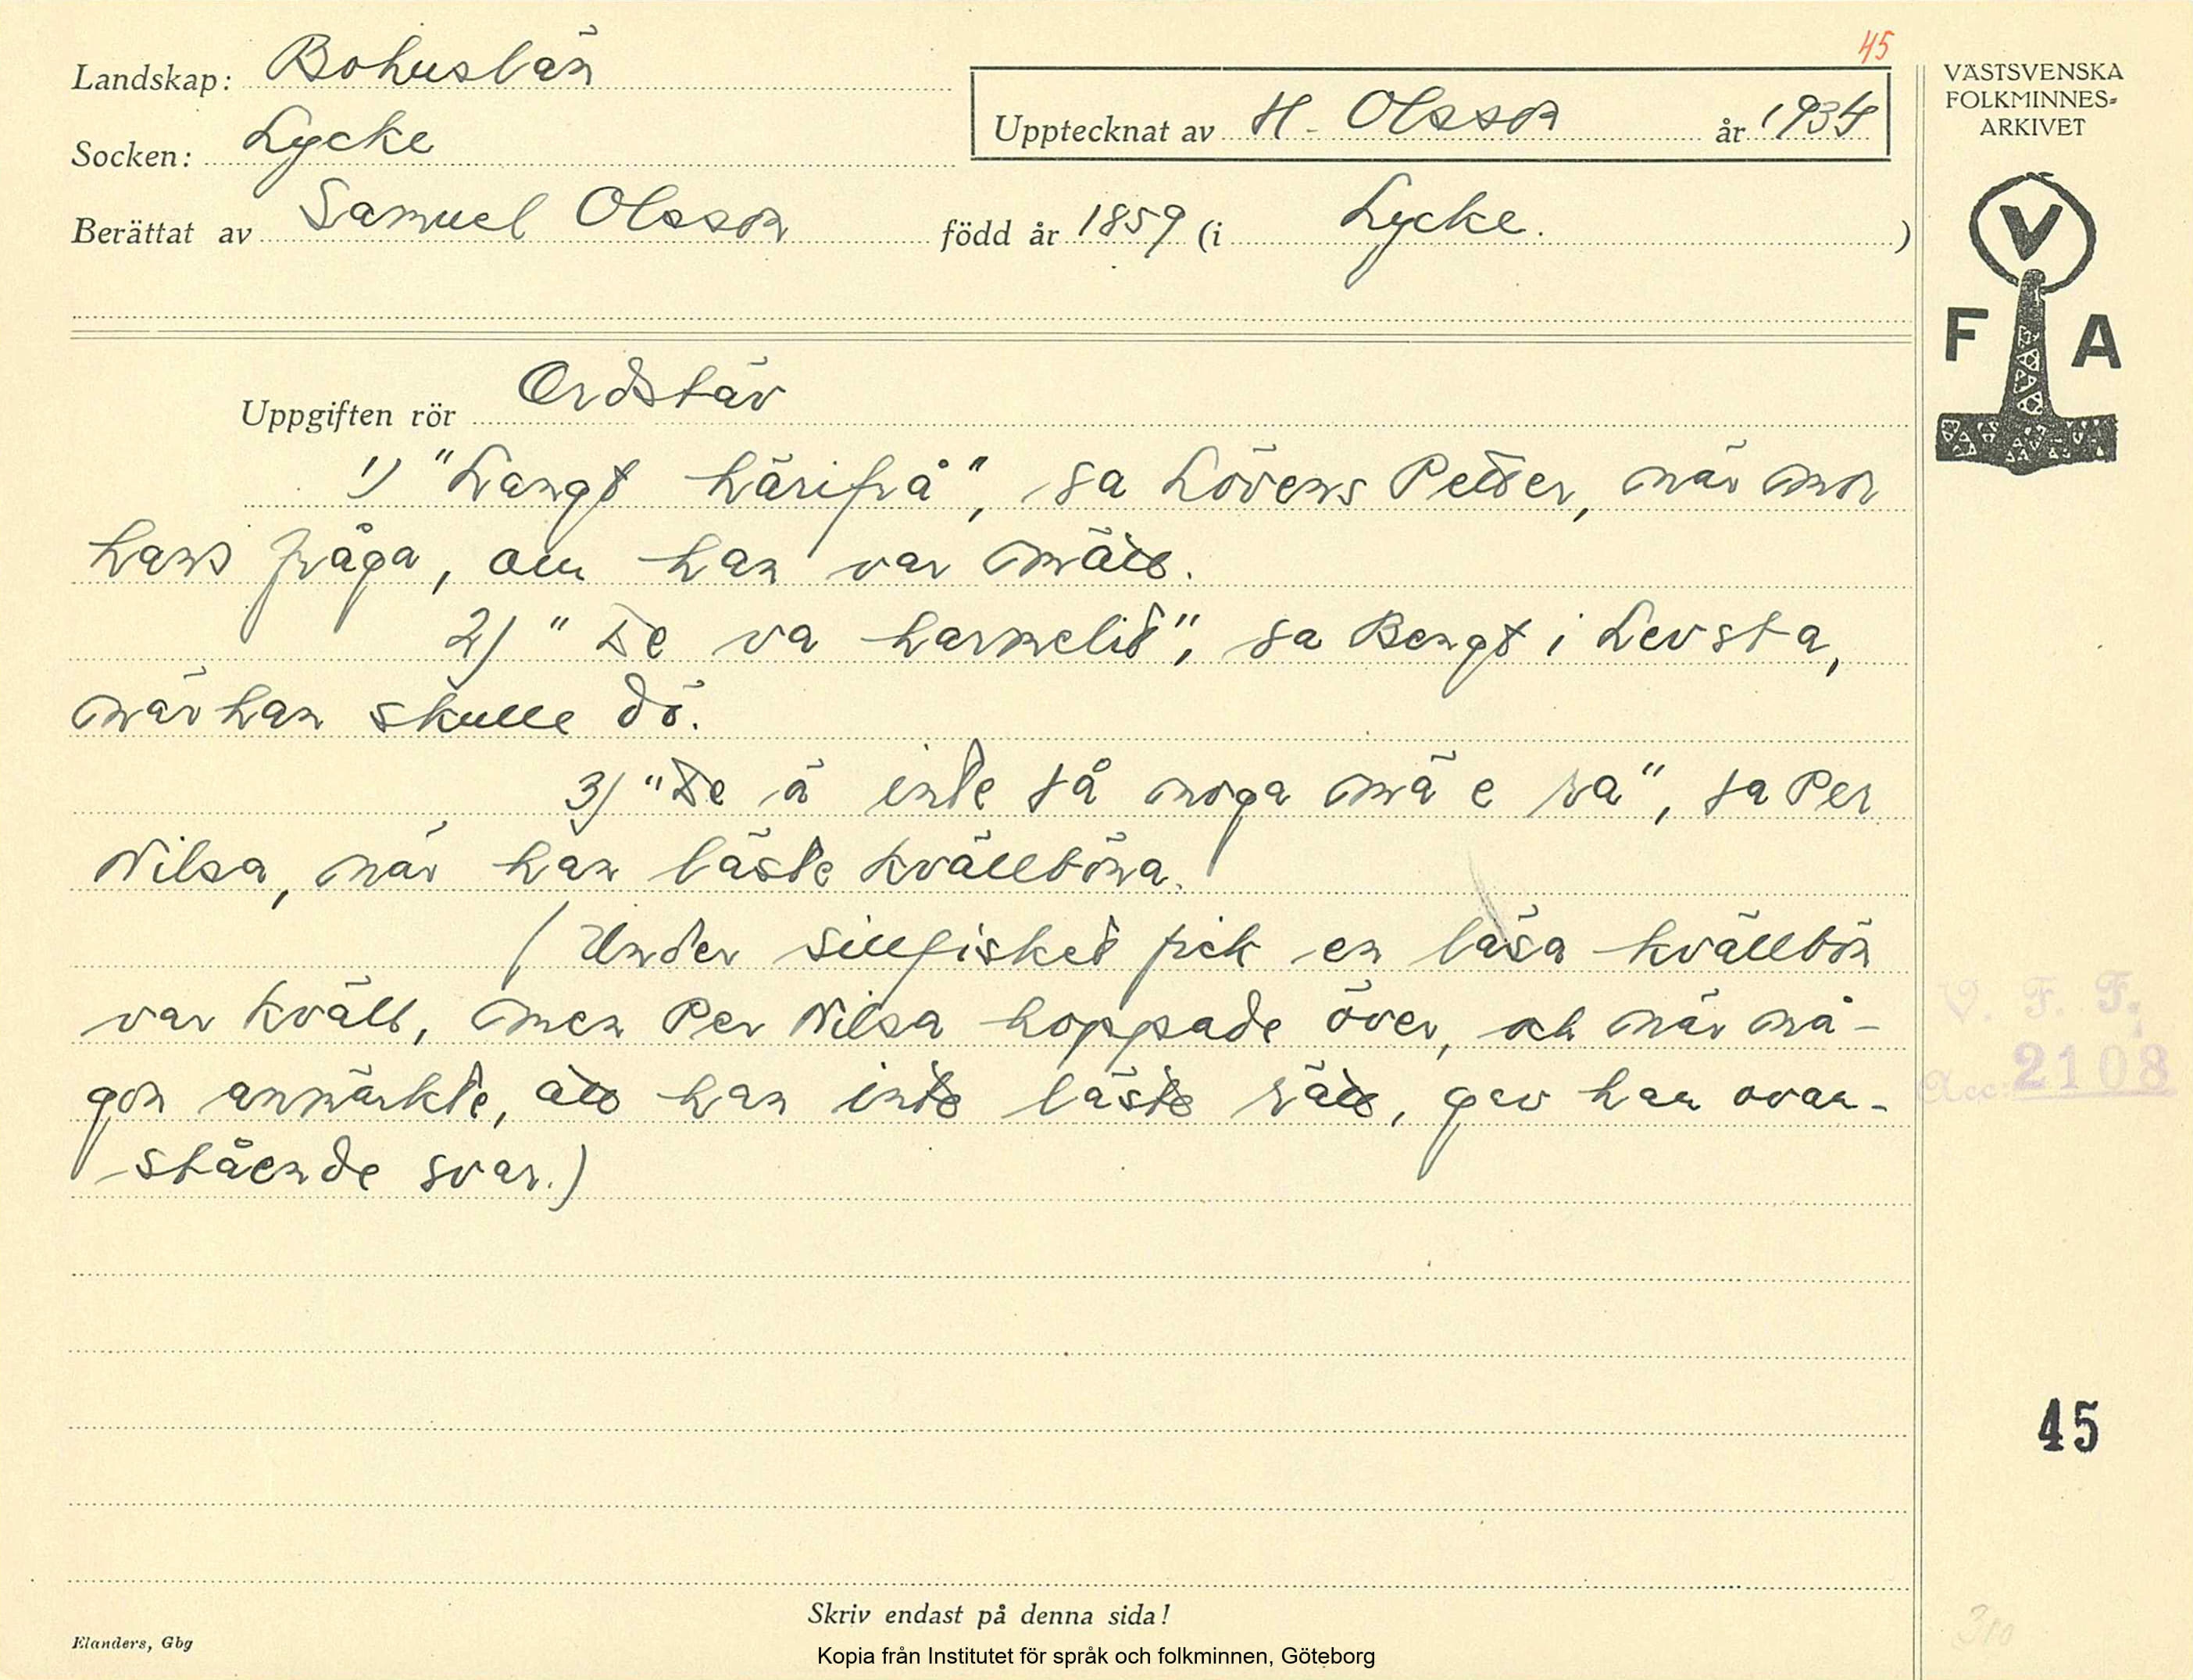 45
Landskap: Bohuslän
Socken: Lycke
Upptecknat av H. Olsson år 1934
Berättat av Samuel Olsson född år 1859 (i Lycke. )
VÄSTSVENSKA
FOLKMINNES=
ARKIVET
V
F A
Uppgiften rör Ordstäv
1) "Langt härifrå", sa Lövens Petter, när mor
hans fråga, om han var mätt.
2) "De va harmelit", sa Bengt i Levsta,
när han skulle dö.
3) "De ä inte så noga mä e ra", sa Per
Nilsa, när han läste kvällböna.
(Under sillfisket fick en läsa kvällbön
var kväll, men Per Nilsa hoppade över, och när nå-
gon anmärkte, att han inte läste rätt, gav han ovan-
stående svar.)
V. F. F.
Acc. 2108
45
Skriv endast på denna sida!
Elanders, Gbg
Kopia från Institutet för språk och folkminnen, Göteborg